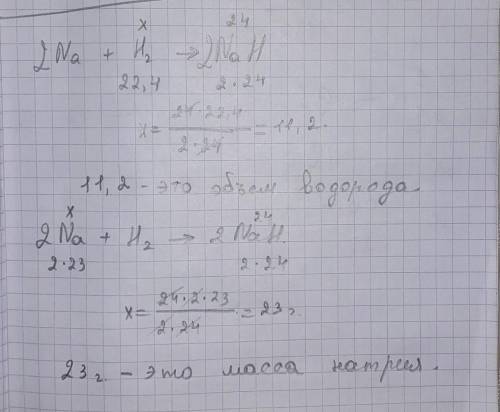 x 24
2Na + H₂ → 2NaH
22,4 2·24
x = 24·22,4 / 2·24 = 11,2.
11,2 - это объем водорода.
x 24
2Na + H₂ → 2NaH
2·23 2·24
x = 24·2·23 / 2·24 = 23г
23г. - это масса натрия.